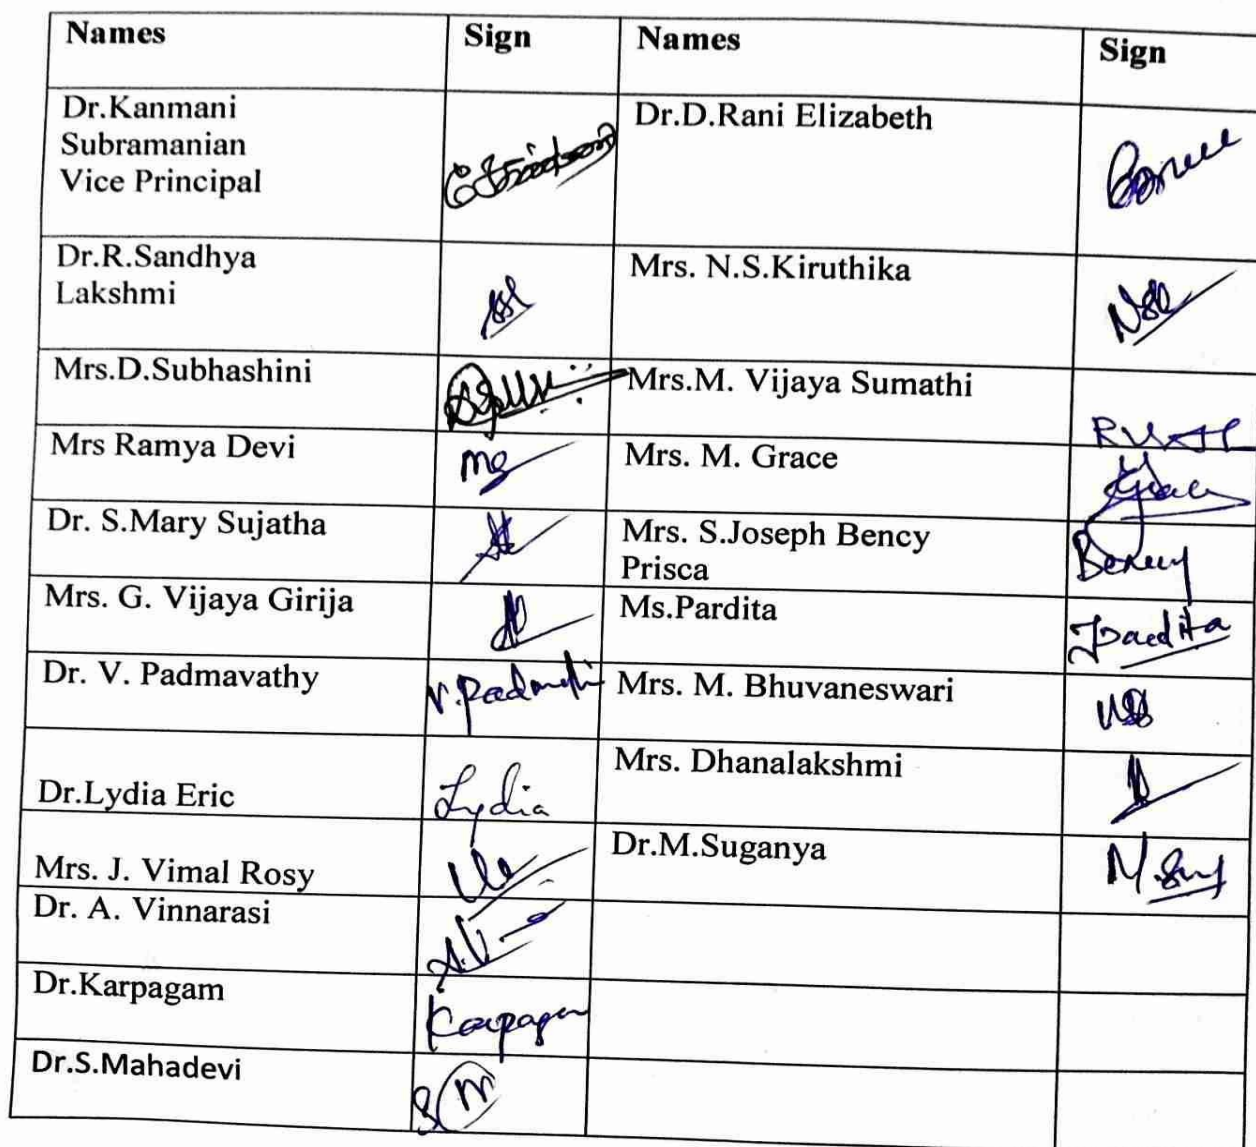 Names Sign Names Sign
Dr.Kanmani
Subramanian
Vice Principal
Dr.D.Rani Elizabeth
Dr.R.Sandhya
Lakshmi
Mrs. N.S.Kiruthika
Mrs.D.Subhashini
Mrs.M. Vijaya Sumathi
Mrs Ramya Devi
Mrs. M. Grace
Grace
Dr. S.Mary Sujatha
Mrs. S.Joseph Bency
Prisca
Bency
Mrs. G. Vijaya Girija
Ms.Pardita
Pardita
Dr. V. Padmavathy
Mrs. M. Bhuvaneswari
Dr.Lydia Eric
Lydia
Mrs. Dhanalakshmi
Mrs. J. Vimal Rosy
Dr.M.Suganya
Dr. A. Vinnarasi
Dr.Karpagam
Karpagam
Dr.S.Mahadevi